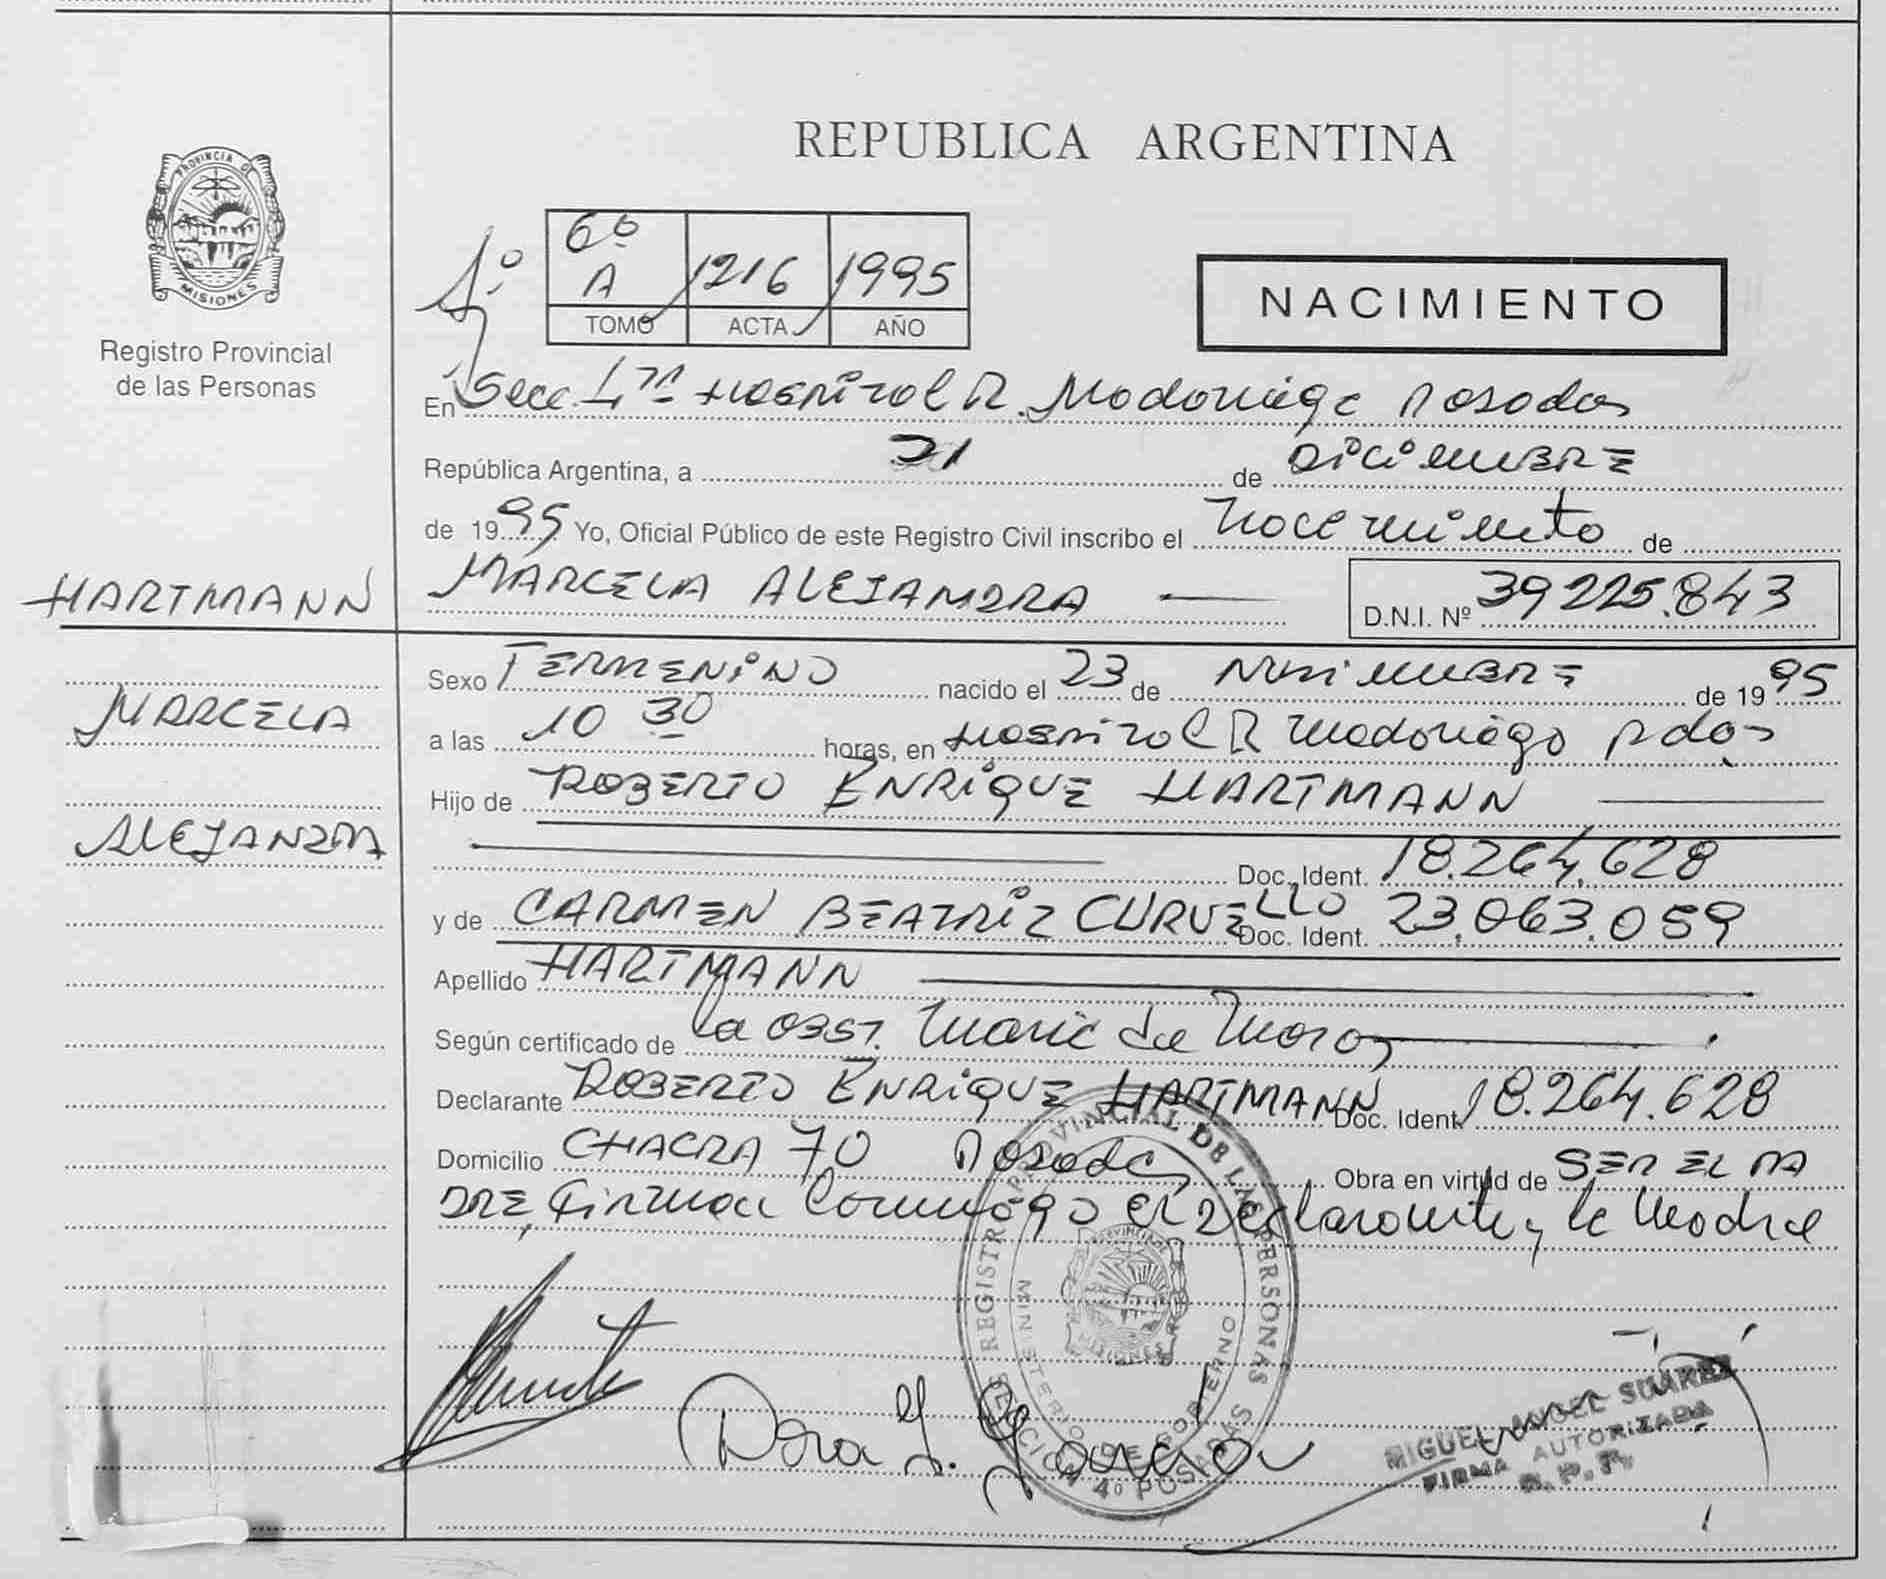 REPUBLICA ARGENTINA
PROVINCIA DE
MISIONES
Registro Provincial
de las Personas
6º
A 1216 1995
TOMO ACTA AÑO
4º
NACIMIENTO
En Secc. 4ta Hospital R. Madariaga Posadas
República Argentina, a 21 de DICIEMBRE
de 1995 Yo, Oficial Público de este Registro Civil inscribo el nacimiento de
HARTMANN
MARCELA ALEJANDRA
D.N.I. Nº 39225.843
MARCELA
ALEJANDRA
Sexo FEMENINO nacido el 23 de NOVIEMBRE de 1995
a las 10 30 horas, en Hospital R Madariaga Pdas
Hijo de ROBERTO ENRIQUE HARTMANN
Doc. Ident. 18.264.628
y de CARMEN BEATRIZ CURVELLO Doc. Ident. 23.063.059
Apellido HARTMANN
Según certificado de la OBST. Maria de
Declarante ROBERTO ENRIQUE HARTMANN Doc. Ident. 18.264.628
Domicilio CHACRA 70 Posadas Obra en virtud de SER EL PA
DRE, Firman Conmigo el declarante y la Madre
REGISTRO PROVINCIAL DE LAS PERSONAS
MINISTERIO DE GOBIERNO
SECCION 4º POSADAS
MIGUEL ANGEL SUAREZ
FIRMA AUTORIZADA
R. P. P.